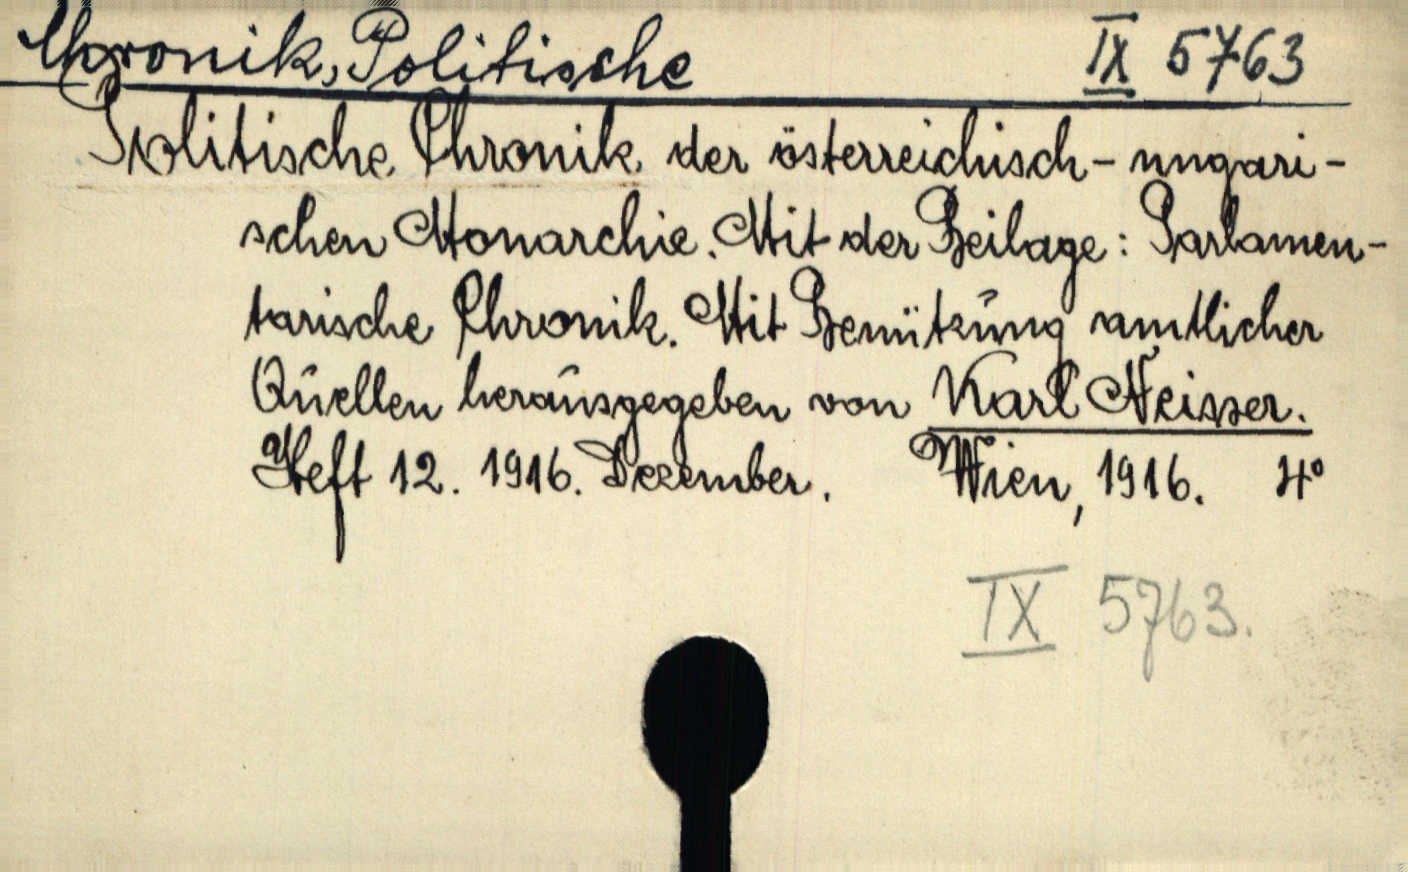 Chronik, Politische IX 5763
Politische Chronik der österreichisch-ungari-
schen Monarchie. Mit der Beilage: Parlamen-
tarische Chronik. Mit Benützung amtlicher
Quellen herausgegeben von Karl Neisser.
Heft 12. 1916. Dezember. Wien, 1916. 4°
IX 5763.